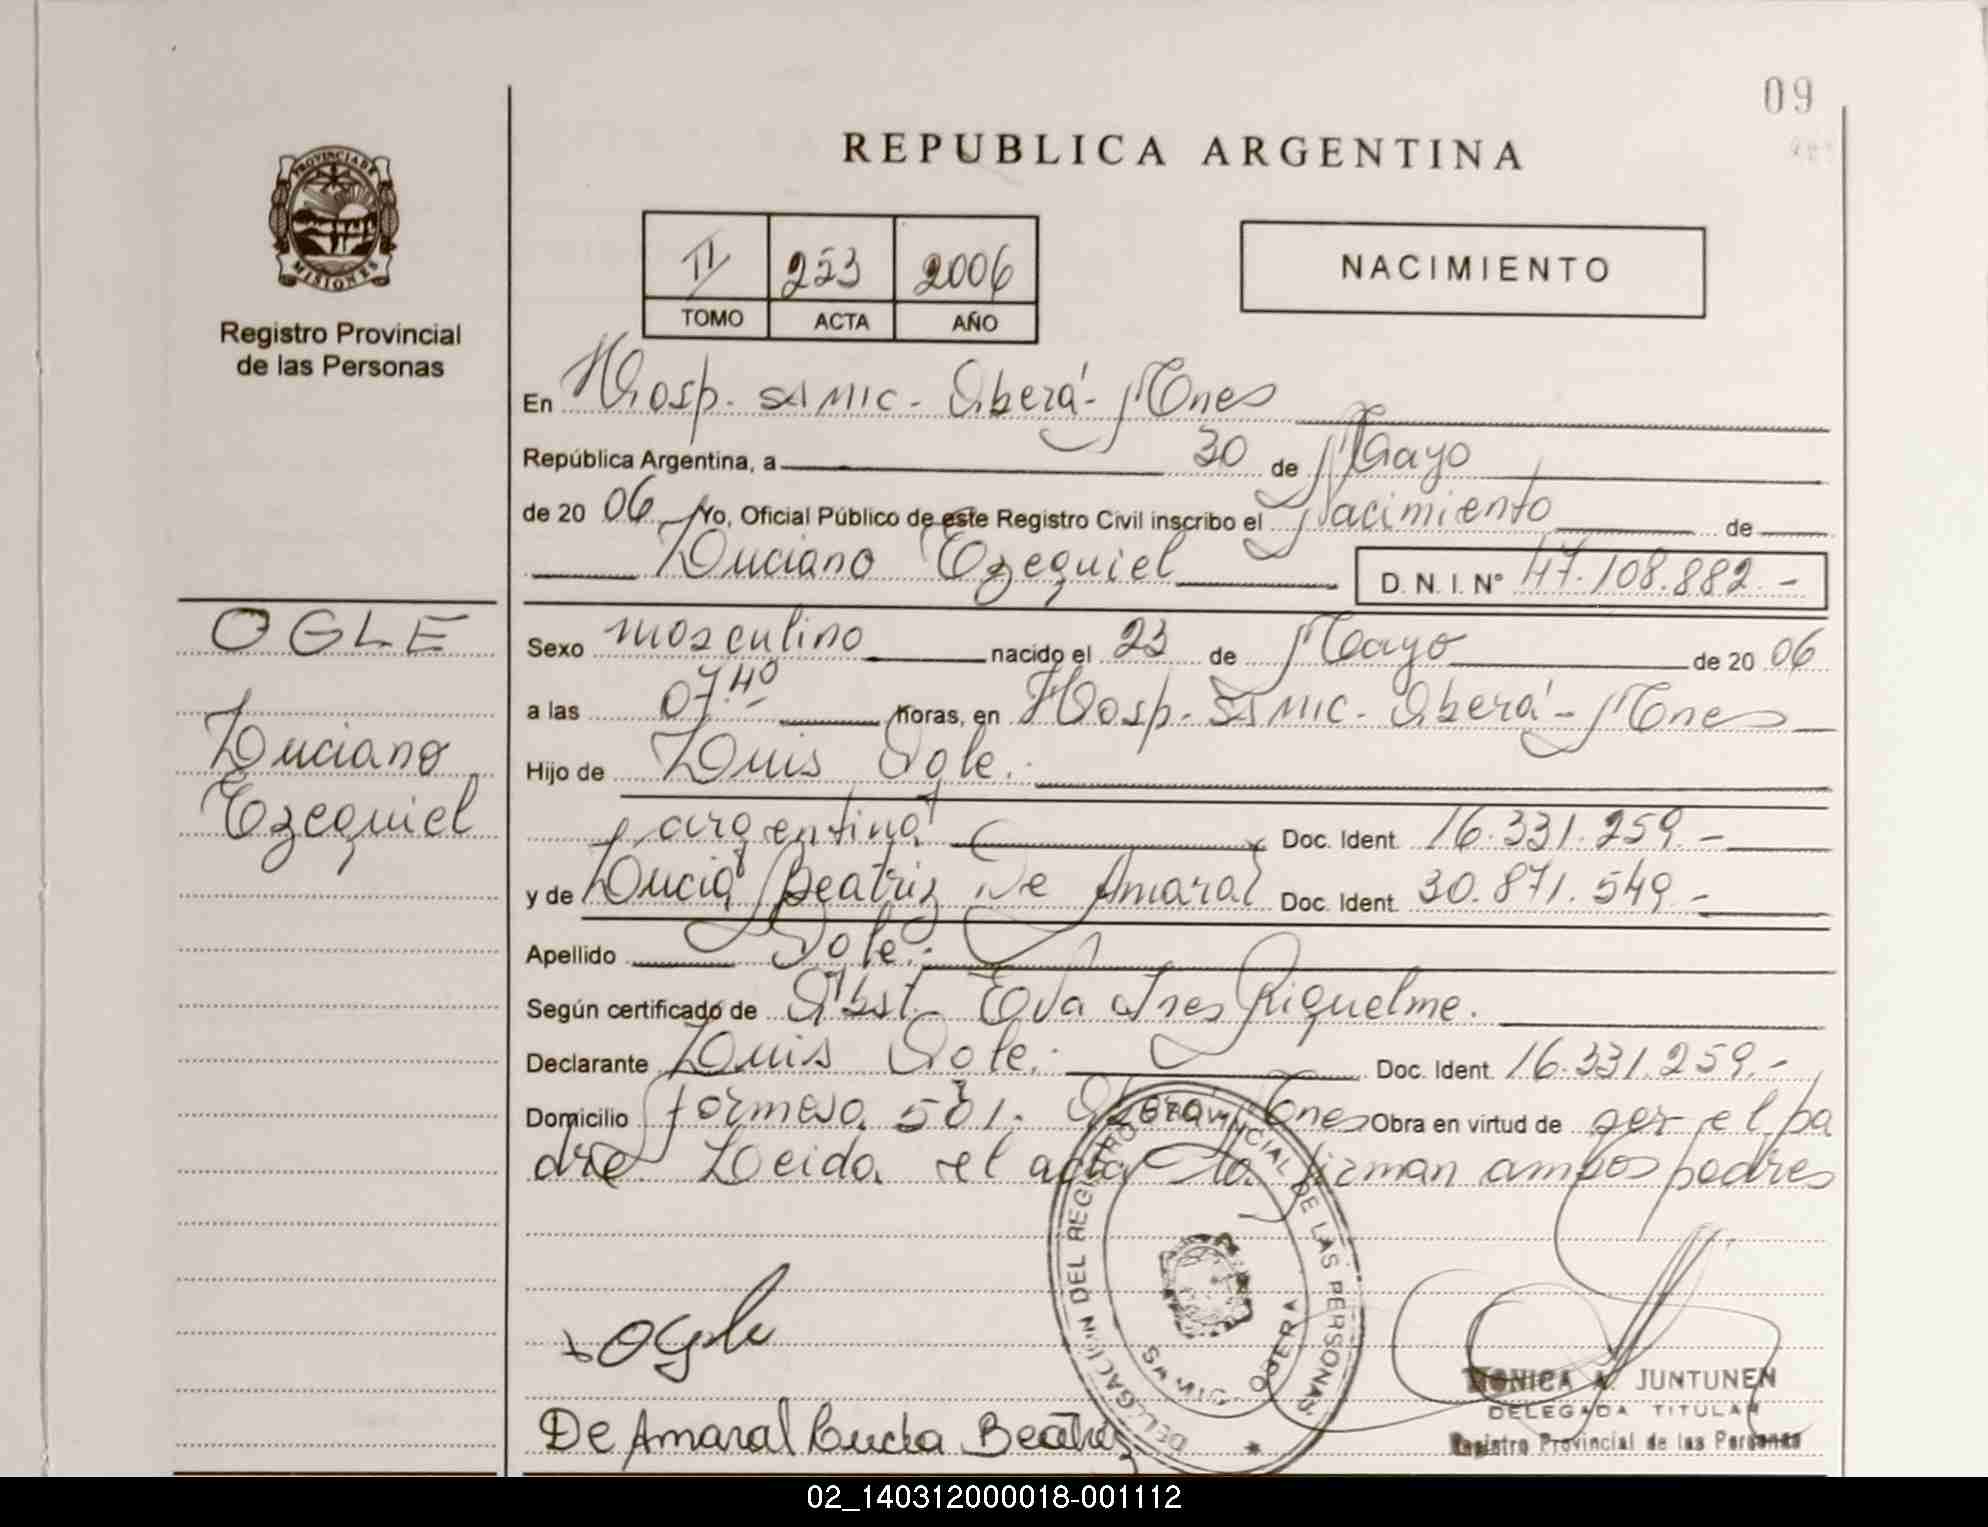 09
REPUBLICA ARGENTINA
PROVINCIA DE
MISIONES
Registro Provincial
de las Personas
II 253 2006
TOMO ACTA AÑO
NACIMIENTO
En Hosp. SAMIC - Oberá - Mnes
República Argentina, a 30 de Mayo
de 20 06 Yo, Oficial Público de este Registro Civil inscribo el Nacimiento de
Luciano Ezequiel D. N. I. N° 47.108.882.-
OGLE
Luciano
Ezequiel
Sexo masculino nacido el 23 de Mayo de 20 06
a las 07.40 horas, en Hosp. SAMIC - Oberá - Mnes
Hijo de Luis Ogle.
argentino Doc. Ident. 16.331.259.-
y de Lucia Beatriz De Amaral Doc. Ident. 30.871.549.-
Apellido Ogle.
Según certificado de Obst. Eva Ines Riquelme.
Declarante Luis Ogle. Doc. Ident. 16.331.259.-
Domicilio Formosa 501. Oberá Mnes Obra en virtud de ser el pa
dre Leida el acta la firman ambos padres
Ogle
De Amaral Lucia Beatriz
DELEGACION DEL REGISTRO PROVINCIAL DE LAS PERSONAS
SAMIC - OBERA
MONICA A. JUNTUNEN
DELEGADA TITULAR
Registro Provincial de las Personas
02_140312000018-001112